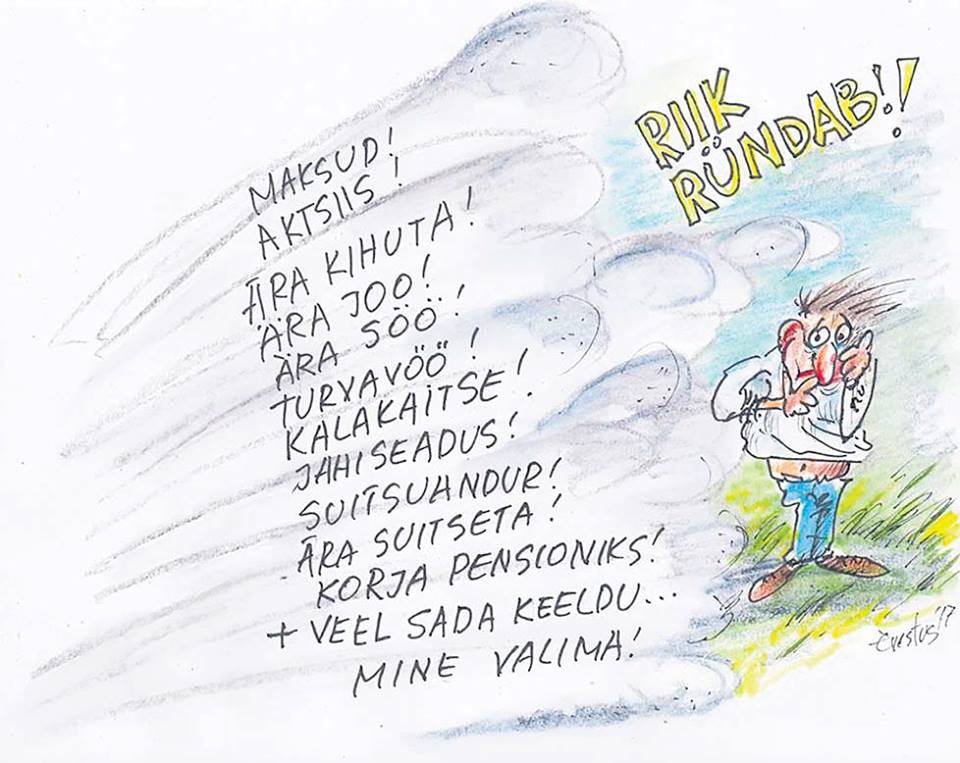 RIIK
RÜNDAB!!
MAKSUD!
AKTSIIS!
ÄRA KIHUTA!
ÄRA JOO!
ÄRA SÖÖ!
TURVAVÖÖ!
KALAKAITSE!
JAHISEADUS!
SUITSUANDUR!
ÄRA SUITSETA!
KORJA PENSIONIKS!
+ VEEL SADA KEELDU...
MINE VALIMA!
Evestus'17